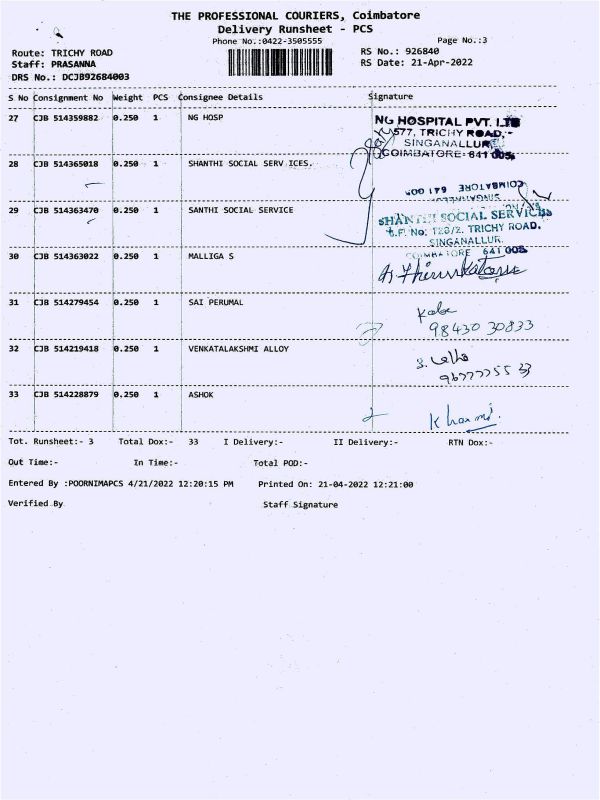 THE PROFESSIONAL COURIERS, Coimbatore
Delivery Runsheet - PCS
Phone No.:0422-3505555
Page No.:3
Route: TRICHY ROAD
RS No.: 926840
Staff: PRASANNA
RS Date: 21-Apr-2022
DRS No.: DCJB92684003
S No Consignment No Weight PCS Consignee Details Signature
27 CJB 514359882 0.250 1 NG HOSP
NG HOSPITAL PVT. LTD
577, TRICHY ROAD,
SINGANALLUR
COIMBATORE- 641 005
28 CJB 514365018 0.250 1 SHANTHI SOCIAL SERV ICES,
COIMBATORE 641 005
29 CJB 514363470 0.250 1 SANTHI SOCIAL SERVICE
SHANTHI SOCIAL SERVICES
TRICHY ROAD,
SINGANALLUR,
COIMBATORE 641 005
30 CJB 514363022 0.250 1 MALLIGA S
31 CJB 514279454 0.250 1 SAI PERUMAL
98430 30833
32 CJB 514219418 0.250 1 VENKATALAKSHMI ALLOY
33 CJB 514228879 0.250 1 ASHOK
Tot. Runsheet:- 3 Total Dox:- 33 I Delivery:- II Delivery:- RTN Dox:-
Out Time:- In Time:- Total POD:-
Entered By :POORNIMAPCS 4/21/2022 12:20:15 PM Printed On: 21-04-2022 12:21:00
Verified By Staff Signature